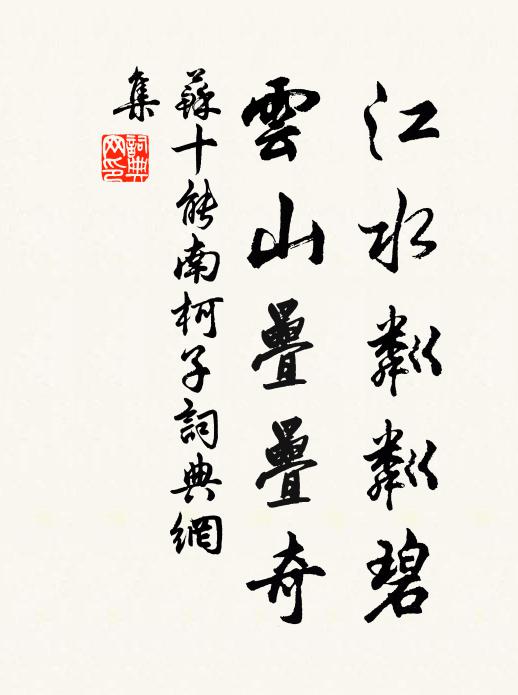 江水粼粼碧
雲山疊疊奇
蘇十能南柯子詞典網
集
詞典網印